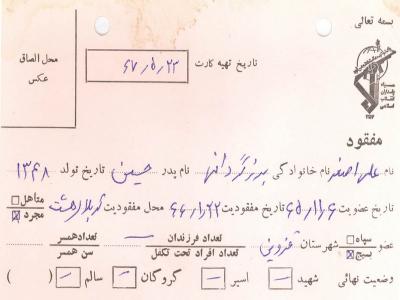 بسمه تعالی
محل الصاق
عکس
تاریخ تهیه کارت ۲۳/۵/۶۷
سپاه پاسداران انقلاب اسلامی
مفقود
نام علی اصغر نام خانوادگی نام پدر حسین تاریخ تولد ۱۳۴۸
تاریخ عضویت ۶/۱۱/۶۵ تاریخ مفقودیت ۲۲/۱/۶۶ محل مفقودیت
متاهل
مجرد
عضو سپاه بسیج شهرستان قزوین تعداد فرزندان — تعداد همسر
تعداد افراد تحت تکفل سن همسر
وضعیت نهائی شهید — اسیر — گروگان — سالم — ( )